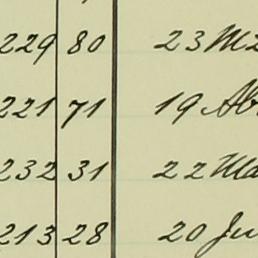 229 80 23
221 71 19
232 31 22
213 28 20